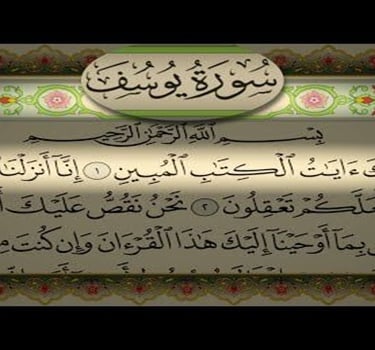 سُورَةُ يُوسُفَ
بِسْمِ اللَّهِ الرَّحْمَٰنِ الرَّحِيمِ
ءَايَٰتُ الْكِتَٰبِ الْمُبِينِ ١ إِنَّآ أَنزَلْنَ
لَعَلَّكُمْ تَعْقِلُونَ ٢ نَحْنُ نَقُصُّ عَلَيْكَ أَ
بِمَآ أَوْحَيْنَآ إِلَيْكَ هَٰذَا الْقُرْءَانَ وَإِن كُنتَ مِ